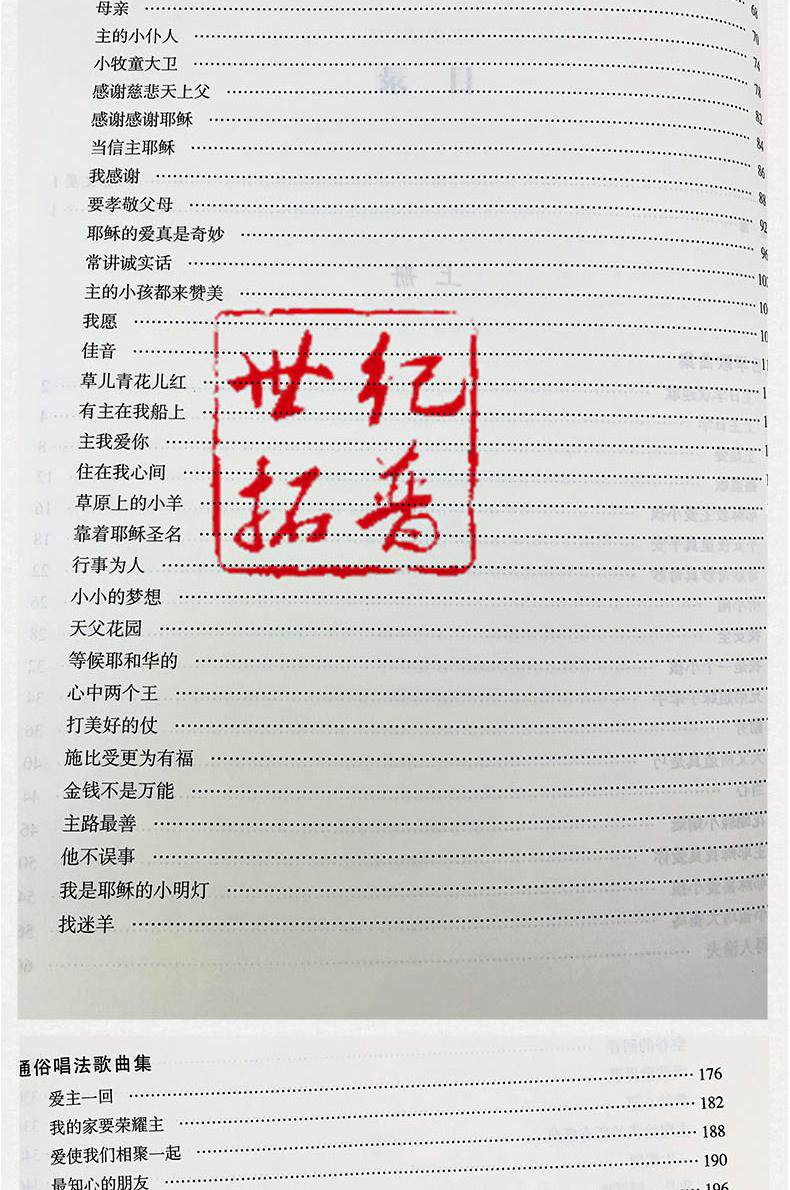 68
母亲 70
主的小仆人 74
小牧童大卫 78
感谢慈悲天上父 82
感谢感谢耶稣 84
当信主耶稣 86
我感谢 88
要孝敬父母 92
耶稣的爱真是奇妙 96
常讲诚实话
主的小孩都来赞美
我愿
佳音
草儿青花儿红
有主在我船上
主我爱你
住在我心间
草原上的小羊
靠着耶稣圣名
行事为人
小小的梦想
天父花园
等候耶和华的
心中两个王
打美好的仗
施比受更为有福
金钱不是万能
主路最善
他不误事
我是耶稣的小明灯
找迷羊
世纪
拓普
通俗唱法歌曲集
爱主一回 176
我的家要荣耀主 182
爱使我们相聚一起 188
最知心的朋友 190
196